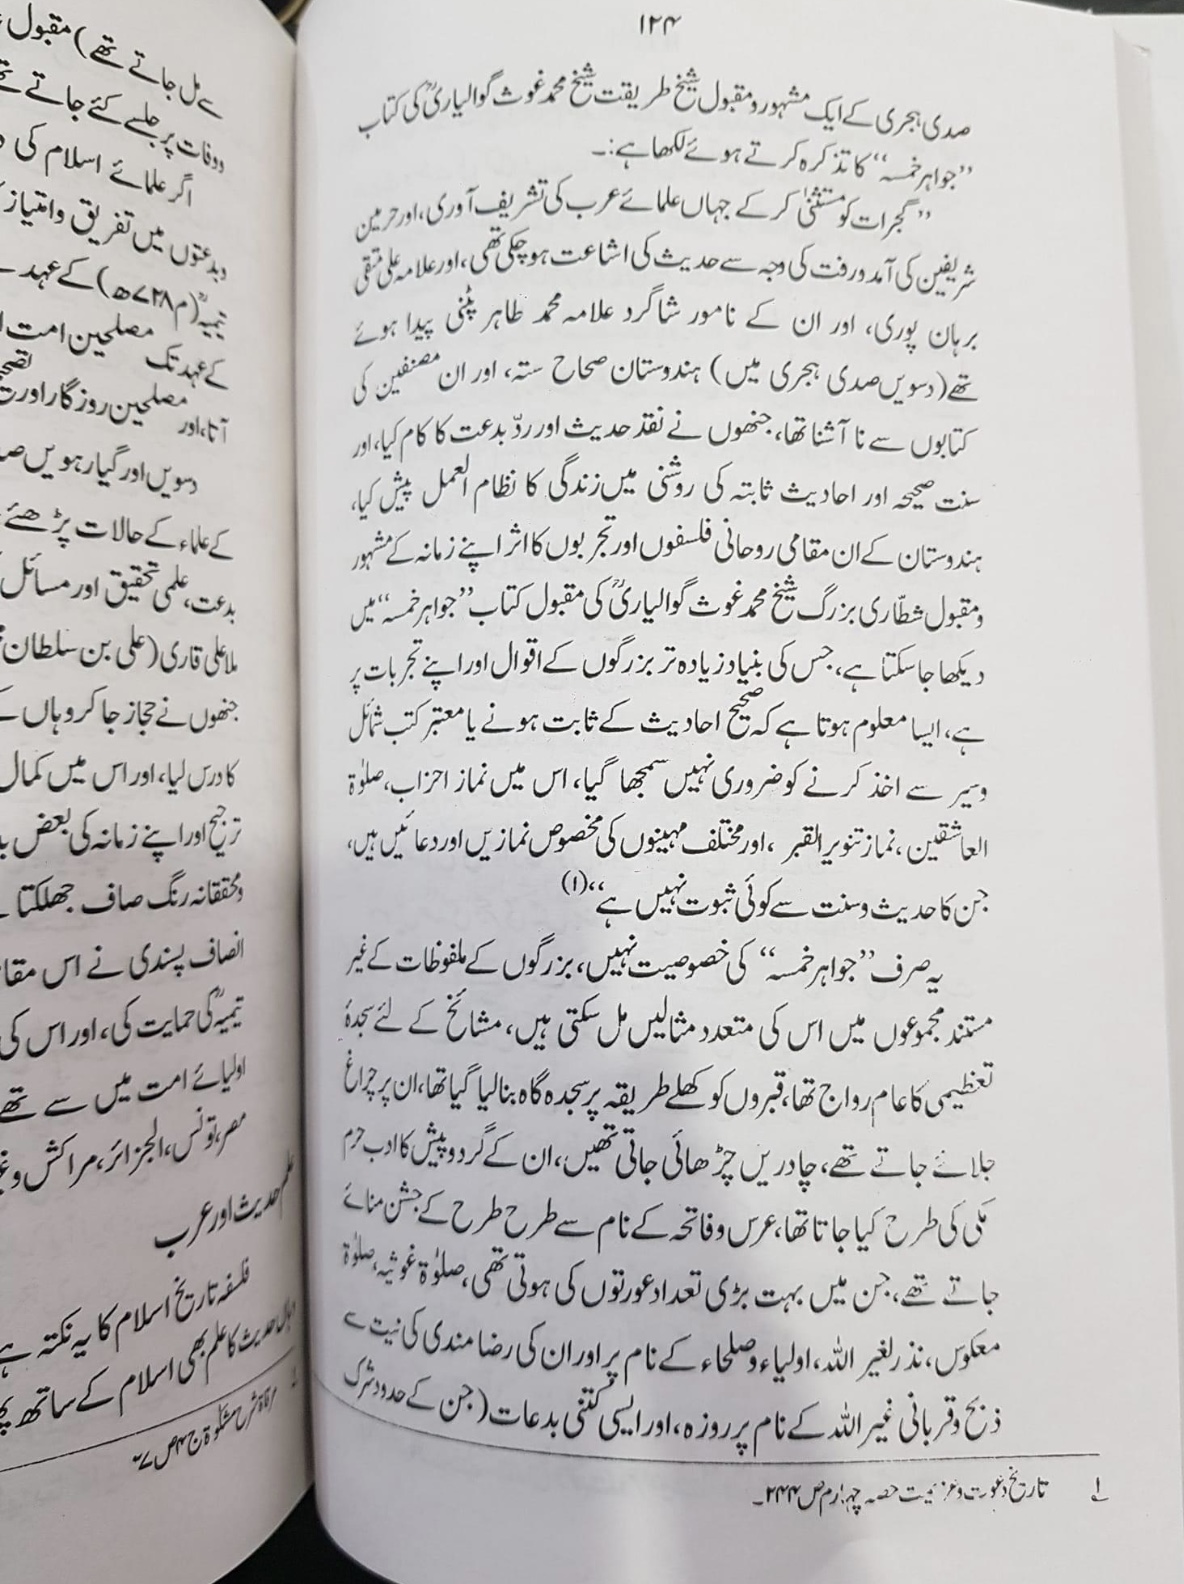 ۱۲۴
صدی ہجری کے ایک مشہور و مقبول شیخ طریقت شیخ محمد غوث گوالیاریؒ کی کتاب
”جواہر خمسہ“ کا تذکرہ کرتے ہوئے لکھا ہے:۔
”گجرات کو مستثنیٰ کر کے جہاں علمائے عرب کی تشریف آوری، اور حرمین
شریفین کی آمد و رفت کی وجہ سے حدیث کی اشاعت ہو چکی تھی، اور علامہ علی متقی
برہان پوری، اور ان کے نامور شاگرد علامہ محمد طاہر پٹنی پیدا ہوئے
تھے (دسویں صدی ہجری میں) ہندوستان صحاح ستہ، اور ان مصنفین کی
کتابوں سے نا آشنا تھا، جنھوں نے نقد حدیث اور ردّ بدعت کا کام کیا، اور
سنت صحیحہ اور احادیث ثابتہ کی روشنی میں زندگی کا نظام العمل پیش کیا،
ہندوستان کے ان مقامی روحانی فلسفوں اور تجربوں کا اثر اپنے زمانہ کے مشہور
و مقبول شطّاری بزرگ شیخ محمد غوث گوالیاریؒ کی مقبول کتاب ”جواہر خمسہ“ میں
دیکھا جا سکتا ہے، جس کی بنیاد زیادہ تر بزرگوں کے اقوال اور اپنے تجربات پر
ہے، ایسا معلوم ہوتا ہے کہ صحیح احادیث کے ثابت ہونے یا معتبر کتب شمائل
و سیر سے اخذ کرنے کو ضروری نہیں سمجھا گیا، اس میں نماز احزاب، صلوٰۃ
العاشقین، نماز تنویر القبر، اور مختلف مہینوں کی مخصوص نمازیں اور دعائیں ہیں،
جن کا حدیث و سنت سے کوئی ثبوت نہیں ہے“(۱)
یہ صرف ”جواہر خمسہ“ کی خصوصیت نہیں، بزرگوں کے ملفوظات کے غیر
مستند مجموعوں میں اس کی متعدد مثالیں مل سکتی ہیں، مشائخ کے لئے سجدۂ
تعظیمی کا عام رواج تھا، قبروں کو کھلے طریقہ پر سجدہ گاہ بنا لیا گیا تھا، ان پر چراغ
جلائے جاتے تھے، چادریں چڑھائی جاتی تھیں، ان کے گرد و پیش کا ادب حرم
مکی کی طرح کیا جاتا تھا، عرس و فاتحہ کے نام سے طرح طرح کے جشن منائے
جاتے تھے، جن میں بہت بڑی تعداد عورتوں کی ہوتی تھی، صلوٰۃ غوثیہ، صلوٰۃ
معکوس، نذر لغیر اللہ، اولیاء و صلحاء کے نام پر اور ان کی رضا مندی کی نیت سے
ذبح و قربانی غیر اللہ کے نام پر روزہ، اور ایسی کتنی بدعات (جن کے حدود شرک
۱؎ تاریخ دعوت و عزیمت حصہ چہارم ص ۲۴۴۔
سے مل جاتے تھے) مقبول
ووفات پر جلسے کئے جاتے
اگر علمائے اسلام کی
وبدعتوں میں تفریق و امتیاز
تیمیہؒ (م ۷۲۸ھ) کے عہد
کے عہد تک مصلحین امت
آتا، اور مصلحین روزگار اور
دسویں اور گیارہویں
کے علماء کے حالات پڑھئے
بدعت، علمی تحقیق اور مسائل
ملا علی قاری (علی بن سلطان
جنھوں نے حجاز جا کر وہاں
کا درس لیا، اور اس میں کمال
ترجیح اور اپنے زمانہ کی بعض
ومحققانہ رنگ صاف جھلکتا
انصاف پسندی نے اس
تیمیہؒ کی حمایت کی، اور اس کی
اولیائے امت میں سے تھے
مصر، تونس، الجزائر، مراکش
علم حدیث اور عرب
فلسفہ تاریخ اسلام کا یہ نکتہ ہے
وہاں حدیث کا علم بھی اسلام کے ساتھ
۱؎ مرقاۃ شرح مشکوٰۃ ج